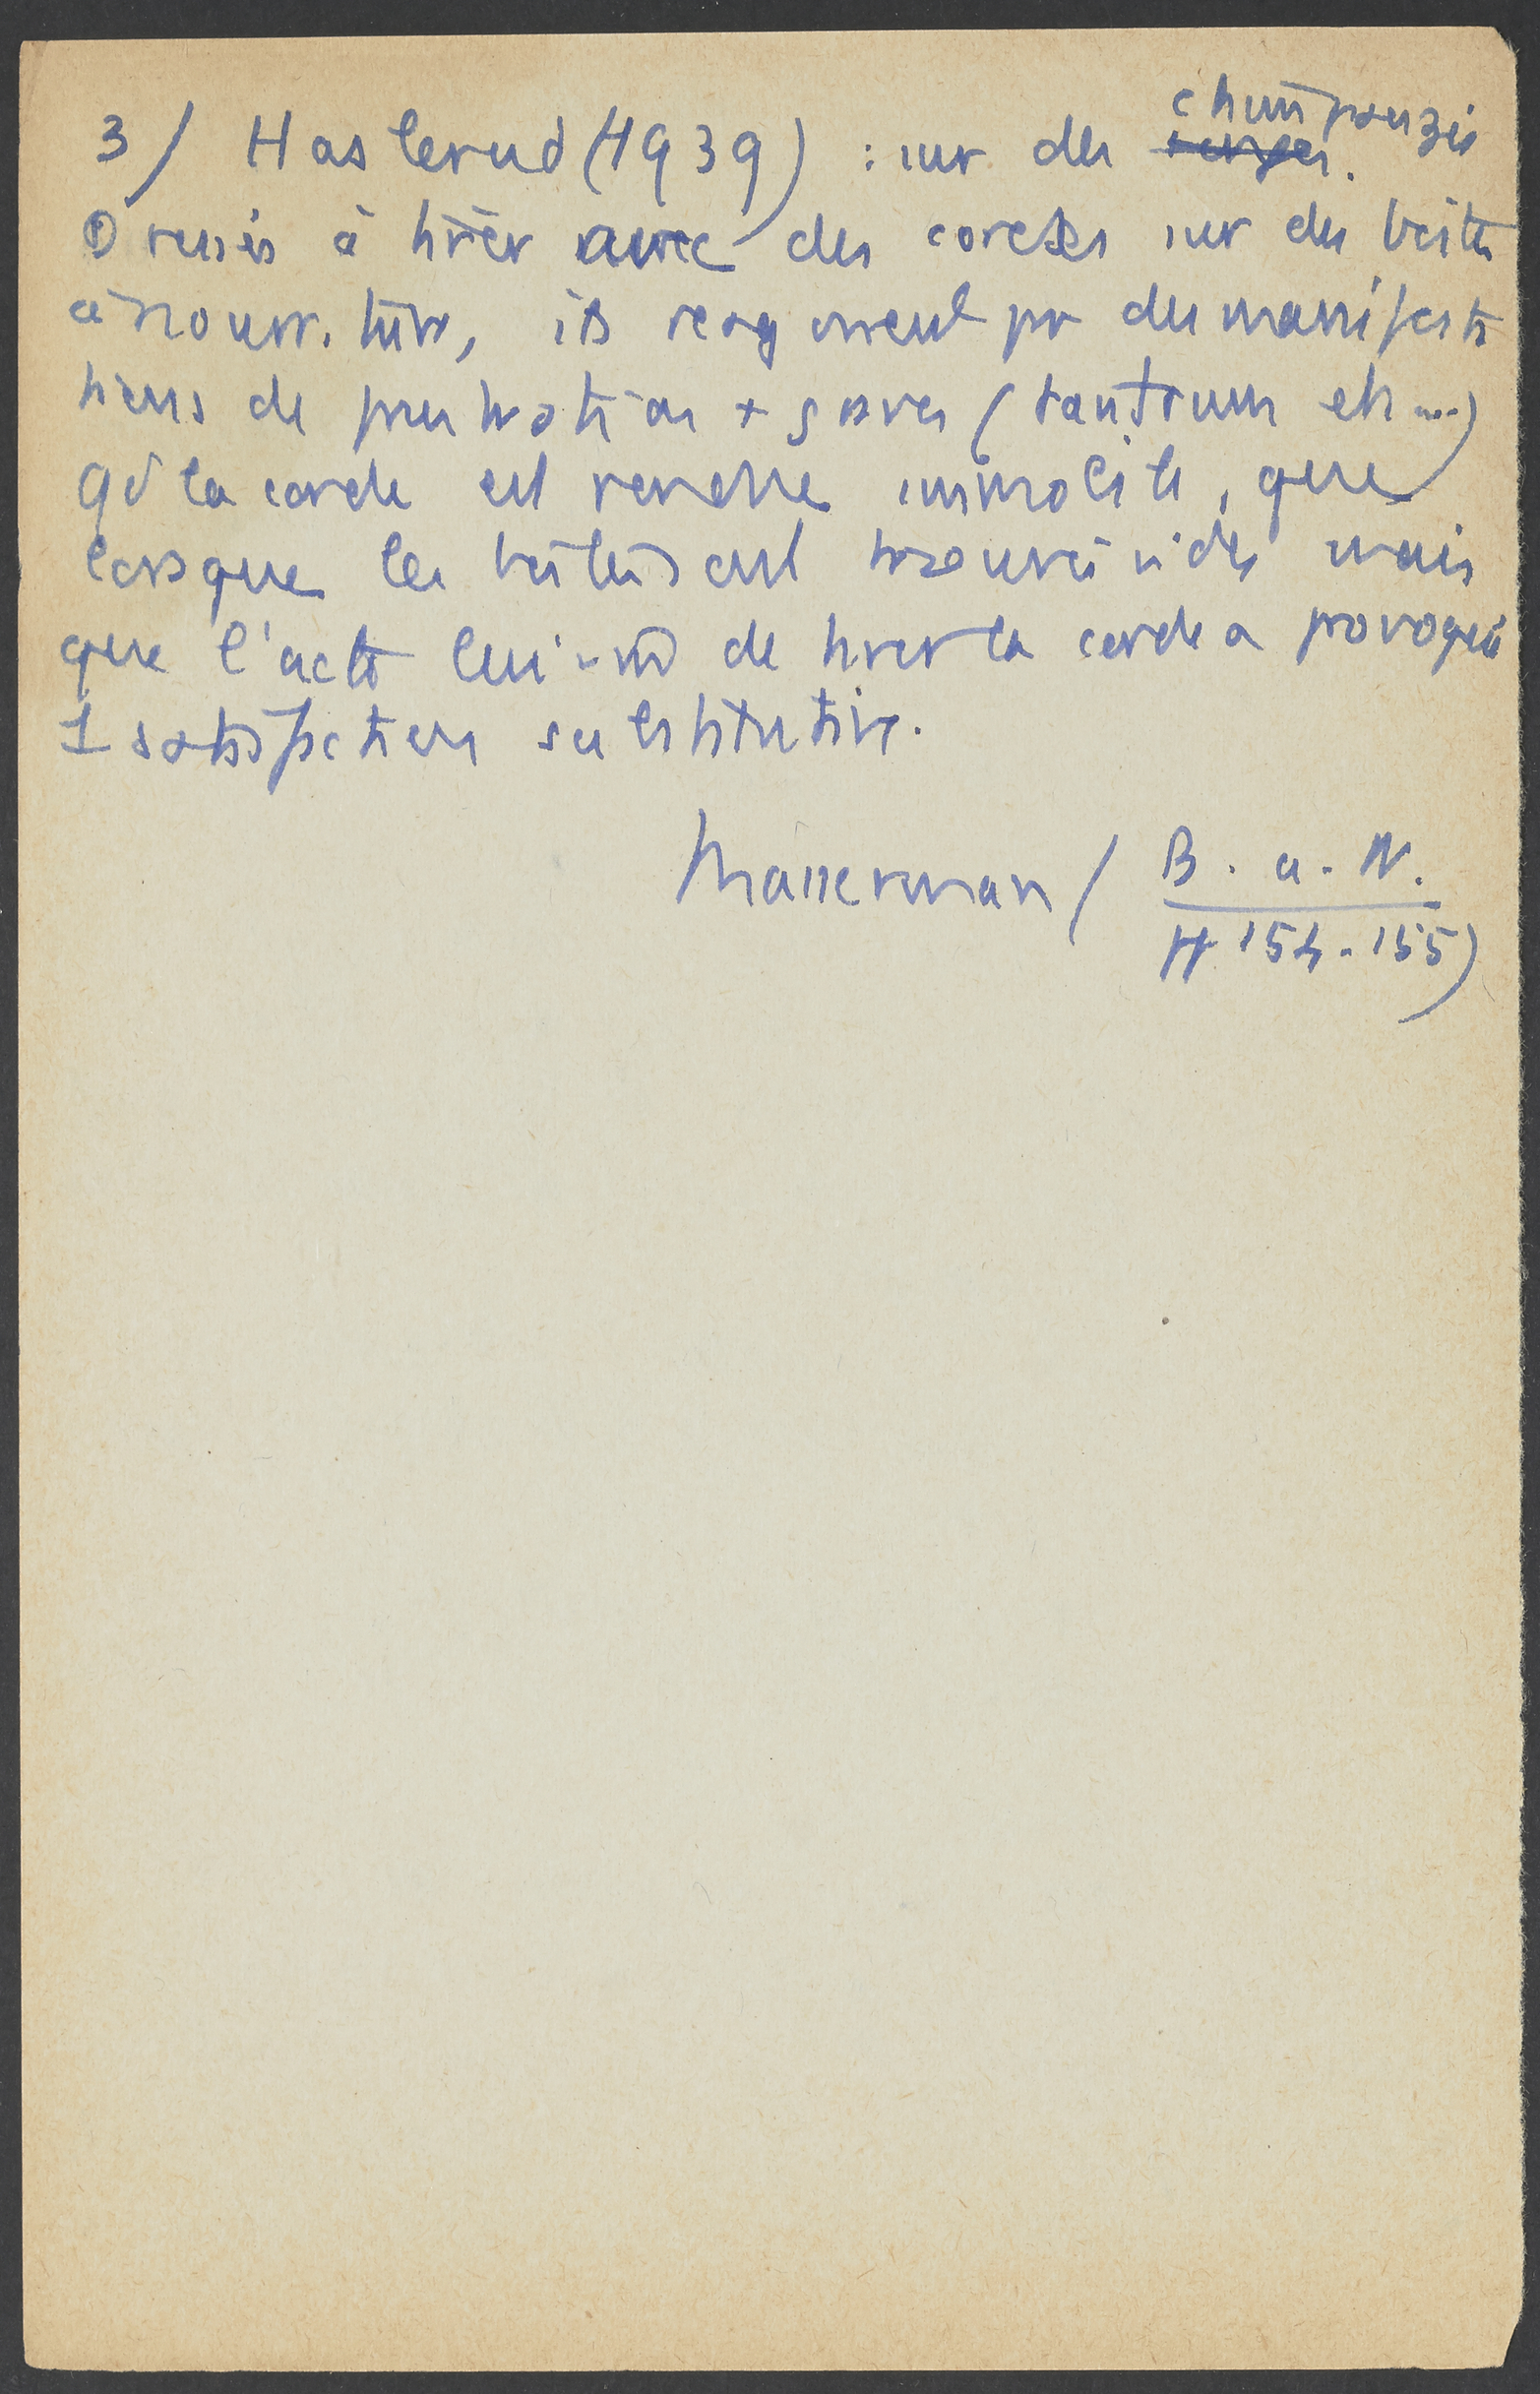 3/ Haslerud (1939) : sur des chimpanzés
Dressés à tirer avec des cordes sur des boîtes
à nourriture, ils reagissent par des manifesta
tions de frustration + graves (tantrum etc...)
qd la corde est rendue immobile, que
lorsque les boîtes sont trouvées vides mais
que l'acte lui-m̂ de tirer la corde a provoqué
1 satisfaction substitutive.
Masserman / B. a. N.
pp 154-155)